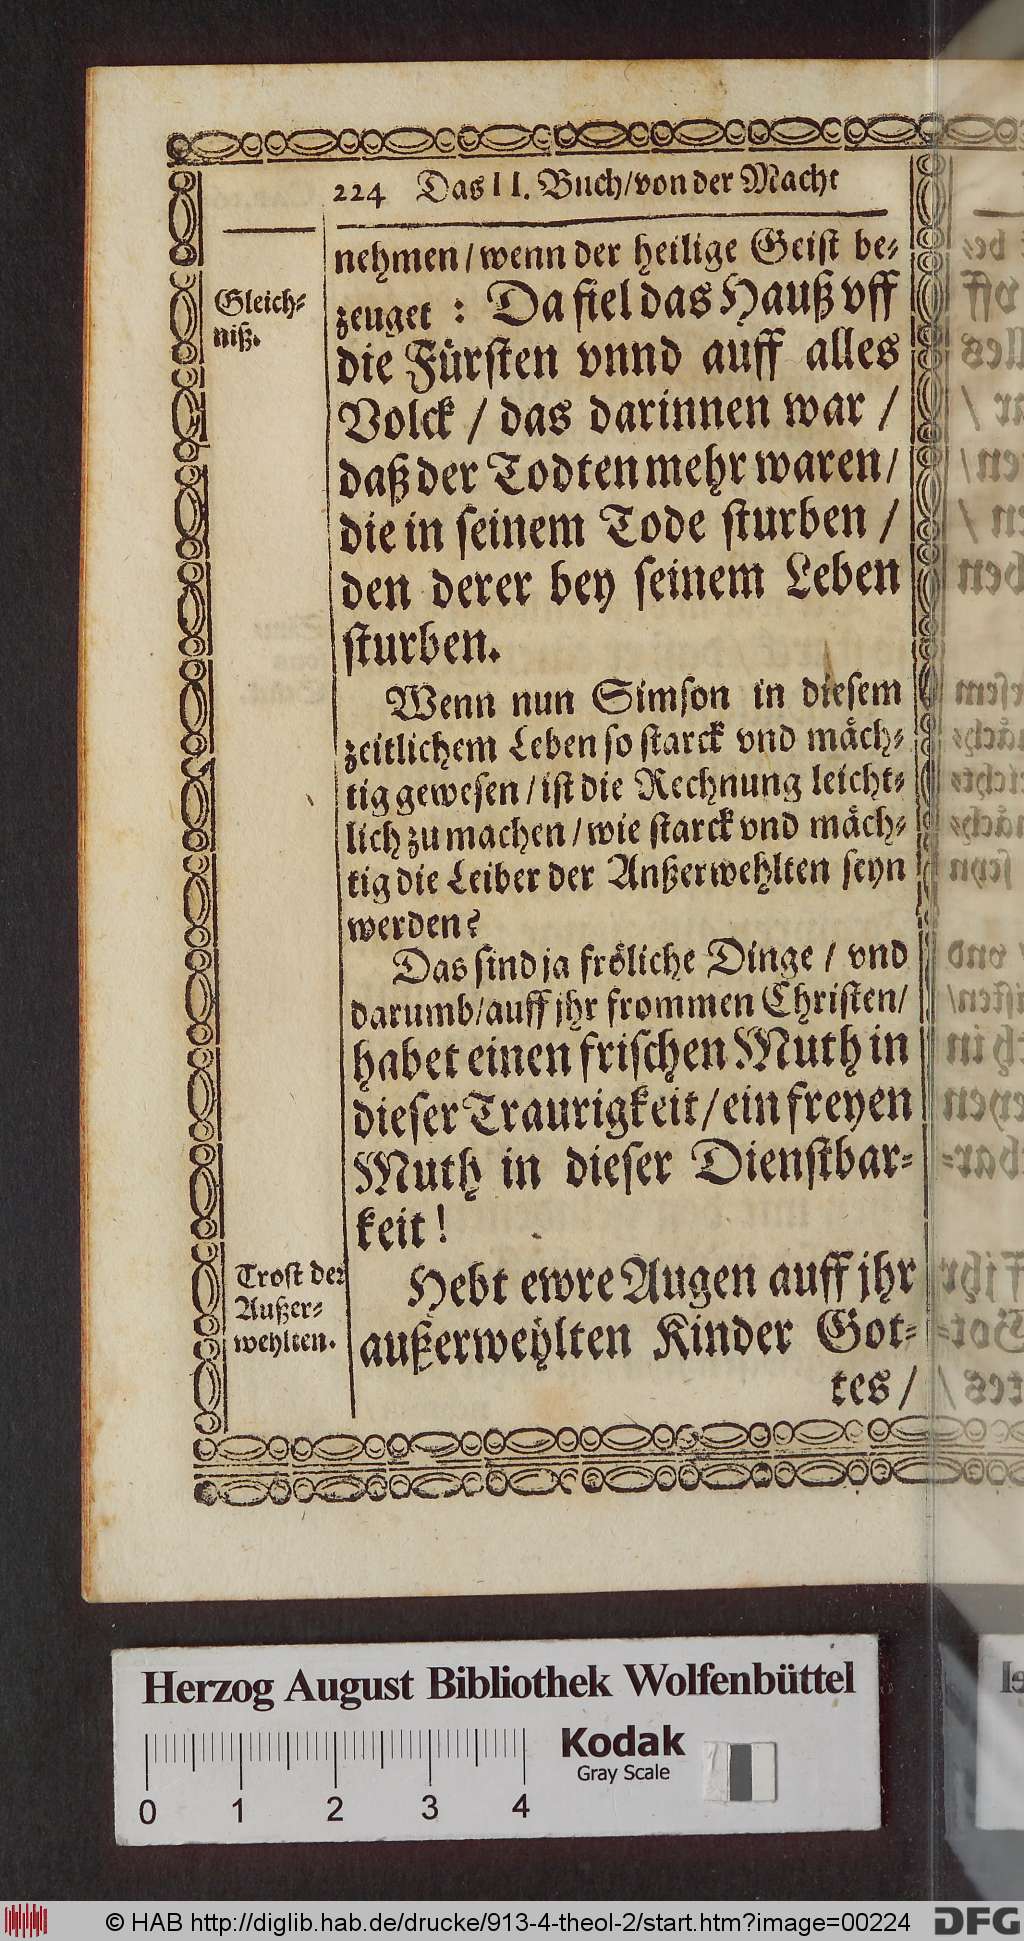 224 Das II. Buch/von der Macht
nehmen/wenn der heilige Geist be-
zeuget : Da fiel das Hauß vff
Gleich-
niß.
die Fürsten vnnd auff alles
Volck / das darinnen war /
daß der Todten mehr waren/
die in seinem Tode sturben /
den derer bey seinem Leben
sturben.
Wenn nun Simson in diesem
zeitlichem Leben so starck vnd mäch-
tig gewesen/ist die Rechnung leicht-
lich zu machen/wie starck vnd mäch-
tig die Leiber der Anßerwehlten seyn
werden?
Das sind ja fröliche Dinge / vnd
darumb/auff jhr frommen Christen/
habet einen frischen Muth in
dieser Traurigkeit/ein freyen
Muth in dieser Dienstbar-
keit!
Trost der
Außer-
wehlten.
Hebt ewre Augen auff jhr
außerwehlten Kinder Got-
tes /
Herzog August Bibliothek Wolfenbüttel
Kodak
Gray Scale
0 1 2 3 4
© HAB http://diglib.hab.de/drucke/913-4-theol-2/start.htm?image=00224
DFG